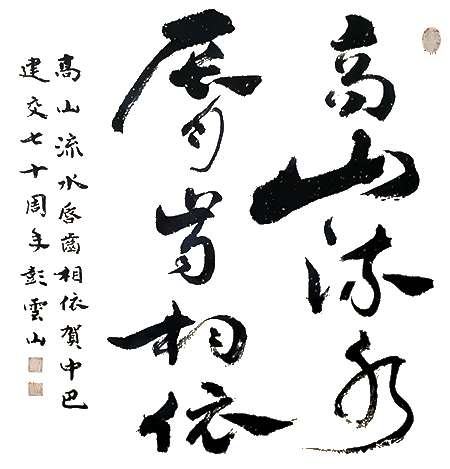 高山流水
脣齒相依
高山流水唇齒相依賀中巴
建交七十周年彭雲山